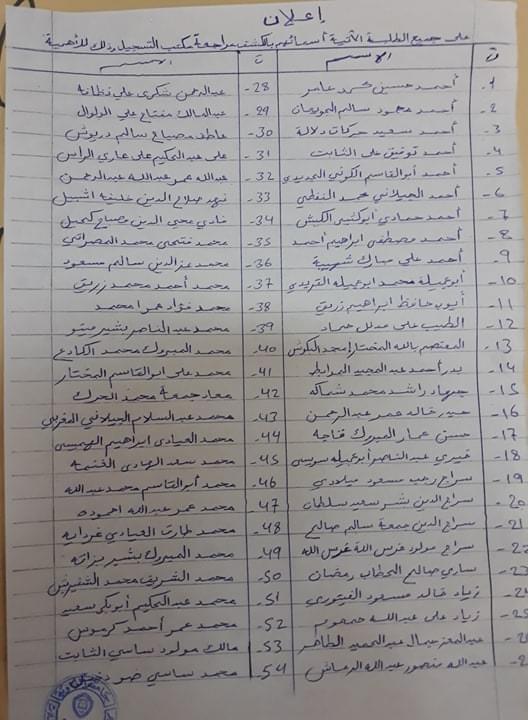 إعلان
على جميع الطلبة الآتية أسمائهم بالكشف مراجعة مكتب التسجيل وذلك للأهمية
ت الاسم ت الاسم
1- أحمد حسين محمد عامر 28- عبدالرحمن شكري علي
2- أحمد محمود سالم 29- عبدالمالك مفتاح علي الولوال
3- أحمد سعيد حركات دلالة 30- عاطف مصباح سالم درويش
4- أحمد توفيق علي الشابت 31- علي عبدالحكيم علي عاري الراس
5- أحمد أبوالقاسم الكوني 32- عبدالله عمر عبدالله عبدالرحمن
6- أحمد الجيلاني محمد النفطي 33- فهد صلاح الدين خليفة اشبيل
7- أحمد حمادي أبوكثير الكبش 34- فادي محي الدين مصباح
8- أحمد مصطفى ابراهيم احمد 35- محمد فتحي محمد المصراتي
9- أحمد علي مبارك شهيبة 36- محمد عزالدين سالم مسعود
10- أبوعجيلة محمد ابوعجيلة القريدي 37- محمد أحمد محمد زريق
11- أيوب حافظ ابراهيم زريق 38- محمد فؤاد عمر امحمد
12- الطيب علي حماد 39- محمد عبدالناصر بشير
13- المعتصم بالله المختار امحمد الكوش 40- محمد المبروك محمد الكادع
14- بدر أحمد عبدالمجيد المرابط 41- محمد علي ابوالقاسم المختار
15- جهاد راشد محمد شماكه 42- معاد جمعة محمد الحرك
16- حيدر خالد عمر عبدالرحمن 43- محمد عبدالسلام الجيلاني المغربي
17- حسن عمار المبروك 44- محمد العيادي ابراهيم الهميسي
18- خيري عبدالناصر أبوعجيله سويسي 45- محمد سعد الهادي
19- سراج رجب مسعود ميلادي 46- محمد أبوالقاسم محمد عبدالله
20- سراج الدين بشير سعيد سلطان 47- محمد عمر عبدالله احموده
21- سراج الدين جمعة سالم صالح 48- محمد طارق العيادي
22- سراج مولود غرس الله غرس الله 49- محمد المبروك بشير
23- ساري صالح الحطاب رمضان 50- محمد الشريف محمد
24 زياد خالد مسعود الفيتوري 51- محمد عبدالحكيم أبوبكر سعيد
25 زياد علي عبدالله جمعوم 52- محمد عمر أحمد كريوس
عبدالمعز جمال عبدالحميد الطاهر 53- مالك مولود ساسي الشابت
عبدالله منصور عبدالله الرماش 54- محمد ساسي ضو